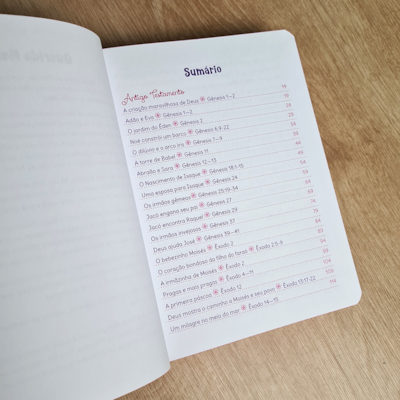 Sumário
Antigo Testamento
A criação maravilhosa de Deus Gênesis 1–2
Adão e Eva Gênesis 1–2
O jardim do Éden Gênesis 2
Noé constrói um barco Gênesis 6.9-22
O dilúvio e o arco íris Gênesis 7–9
A torre de Babel Gênesis 11
Abraão e Sara Gênesis 12–13
O Nascimento de Isaque Gênesis 18.1-15
Uma esposa para Isaque Gênesis 24
Os irmãos gêmeos Gênesis 25.19-34
Jacó engana seu pai Gênesis 27
Jacó encontra Raquel Gênesis 29
Os irmãos invejosos Gênesis 37
Deus ajuda José Gênesis 39–41
O bebezinho Moisés Êxodo 2
O coração bondoso da filha do faraó Êxodo 2.5-9
A irmãzinha de Moisés Êxodo 2
Pragas e mais pragas Êxodo 4–11
A primeira páscoa Êxodo 12
Deus mostra o caminho a Moisés e seu povo Êxodo 13.17-22
Um milagre no meio do mar Êxodo 14–15